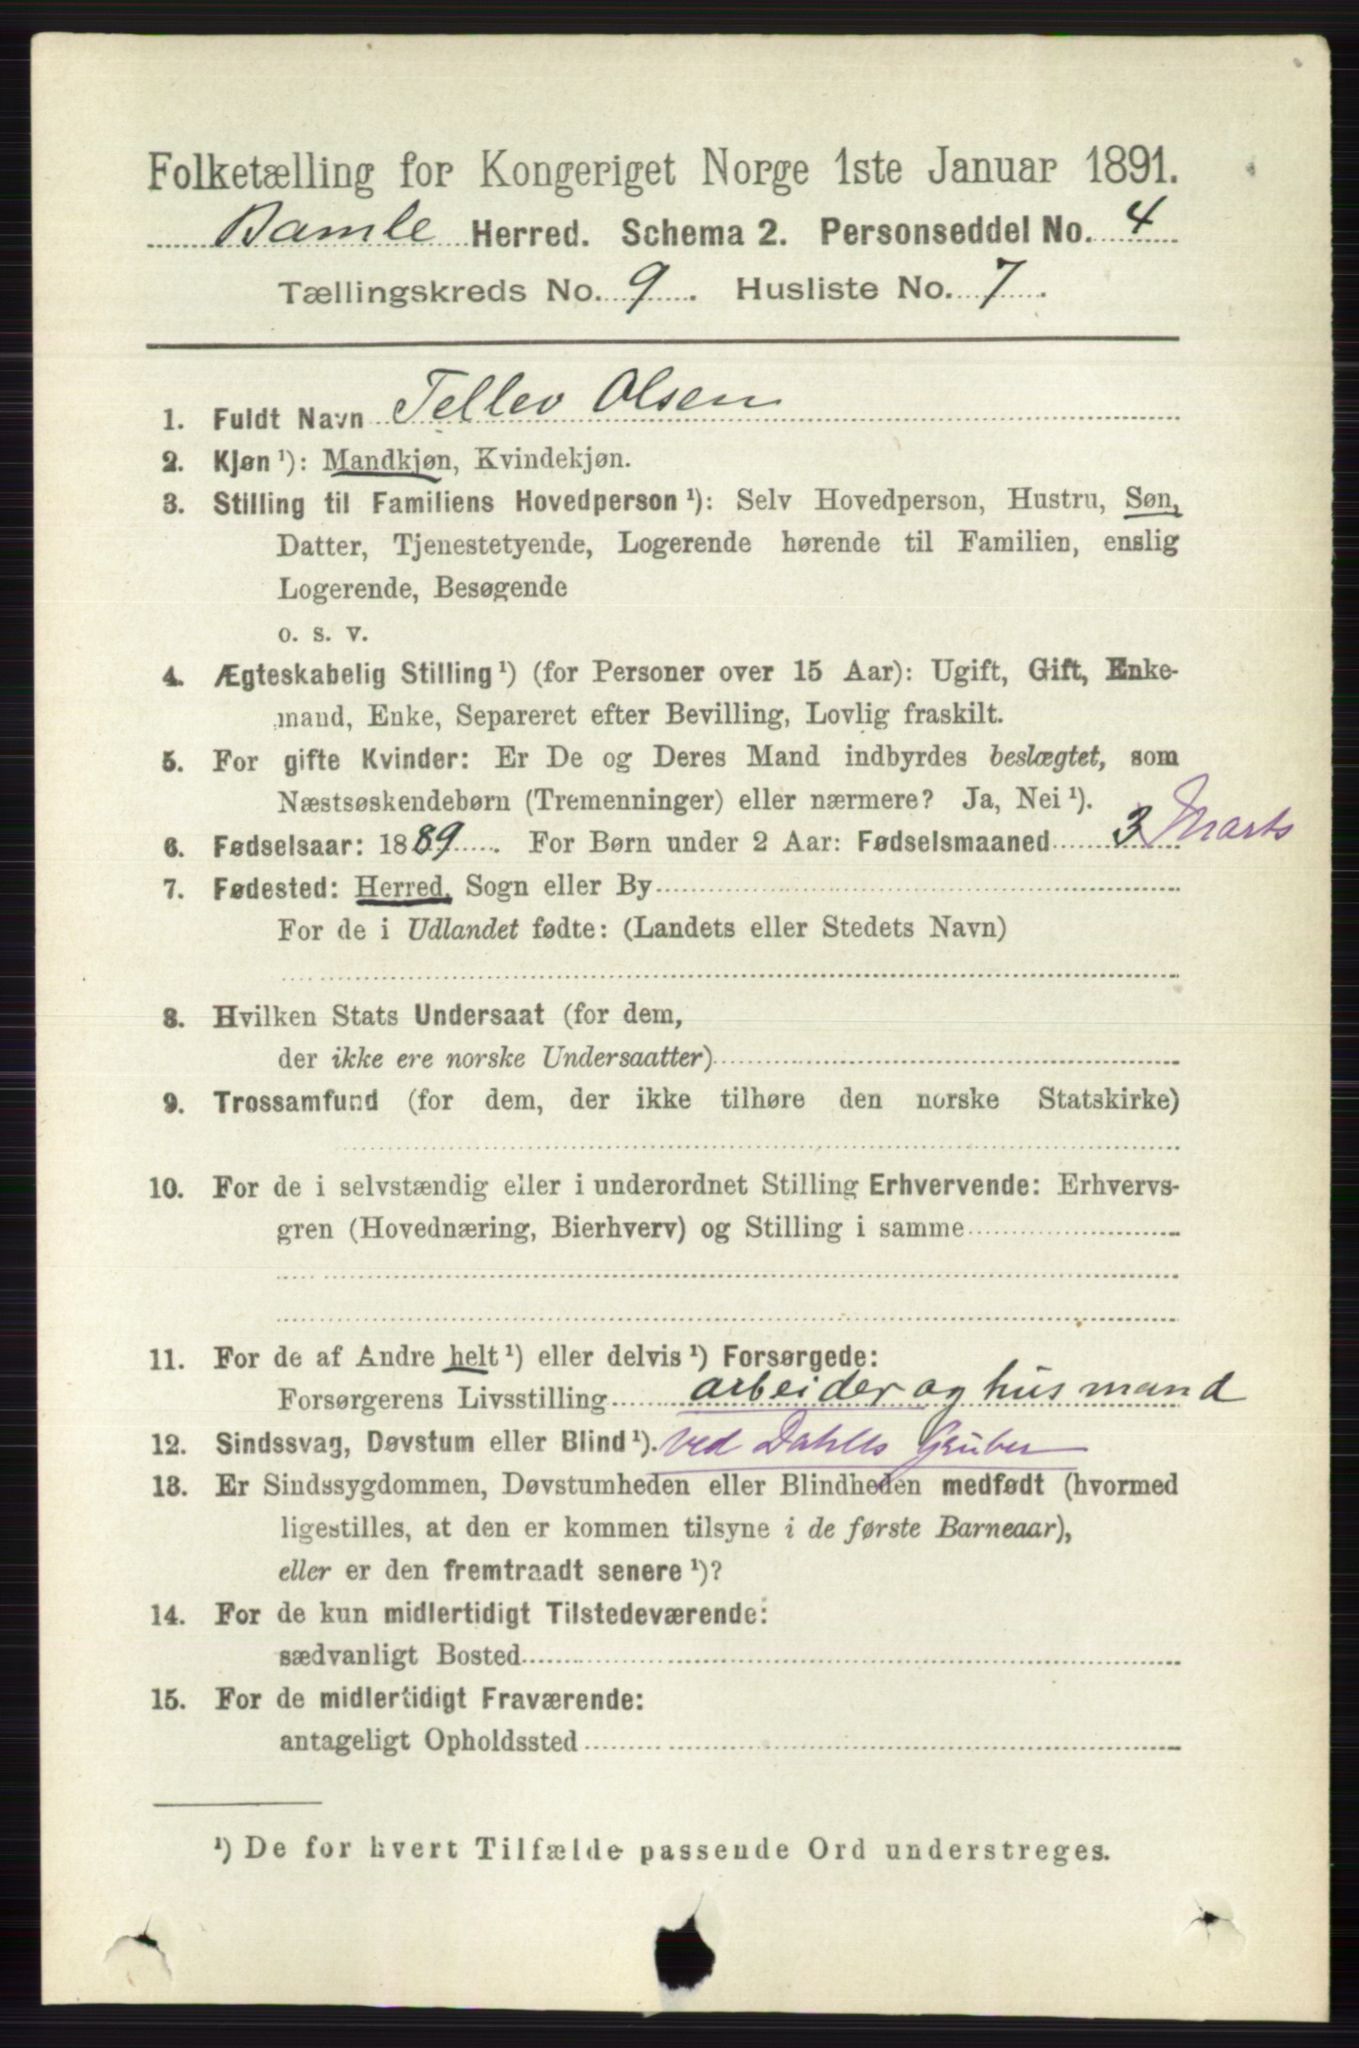 Folketælling for Kongeriget Norge 1ste Januar 1891.
Bamle Herred. Schema 2. Personseddel No. 4
Tællingskreds No. 9. Husliste No. 7.
1. Fuldt Navn Tellev Olsen
2. Kjøn ¹): Mandkjøn, Kvindekjøn.
3. Stilling til Familiens Hovedperson ¹): Selv Hovedperson, Hustru, Søn,
Datter, Tjenestetyende, Logerende hørende til Familien, enslig
Logerende, Besøgende
o. s. v.
4. Ægteskabelig Stilling ¹) (for Personer over 15 Aar): Ugift, Gift, Enke-
mand, Enke, Separeret efter Bevilling, Lovlig fraskilt.
5. For gifte Kvinder: Er De og Deres Mand indbyrdes beslægtet, som
Næstsøskendebørn (Tremenninger) eller nærmere? Ja, Nei ¹).
6. Fødselsaar: 1889. For Børn under 2 Aar: Fødselsmaaned 3 Marts
7. Fødested: Herred, Sogn eller By
For de i Udlandet fødte: (Landets eller Stedets Navn)
8. Hvilken Stats Undersaat (for dem,
der ikke ere norske Undersaatter)
9. Trossamfund (for dem, der ikke tilhøre den norske Statskirke)
10. For de i selvstændig eller i underordnet Stilling Erhvervende: Erhvervs-
gren (Hovednæring, Bierhverv) og Stilling i samme
11. For de af Andre helt ¹) eller delvis ¹) Forsørgede:
Forsørgerens Livsstilling arbeider og husmand
12. Sindssvag, Døvstum eller Blind ¹). ved Dahlls Gruber
13. Er Sindssygdommen, Døvstumheden eller Blindheden medfødt (hvormed
ligestilles, at den er kommen tilsyne i de første Barneaar),
eller er den fremtraadt senere ¹)?
14. For de kun midlertidigt Tilstedeværende:
sædvanligt Bosted
15. For de midlertidigt Fraværende:
antageligt Opholdssted
¹) De for hvert Tilfælde passende Ord understreges.